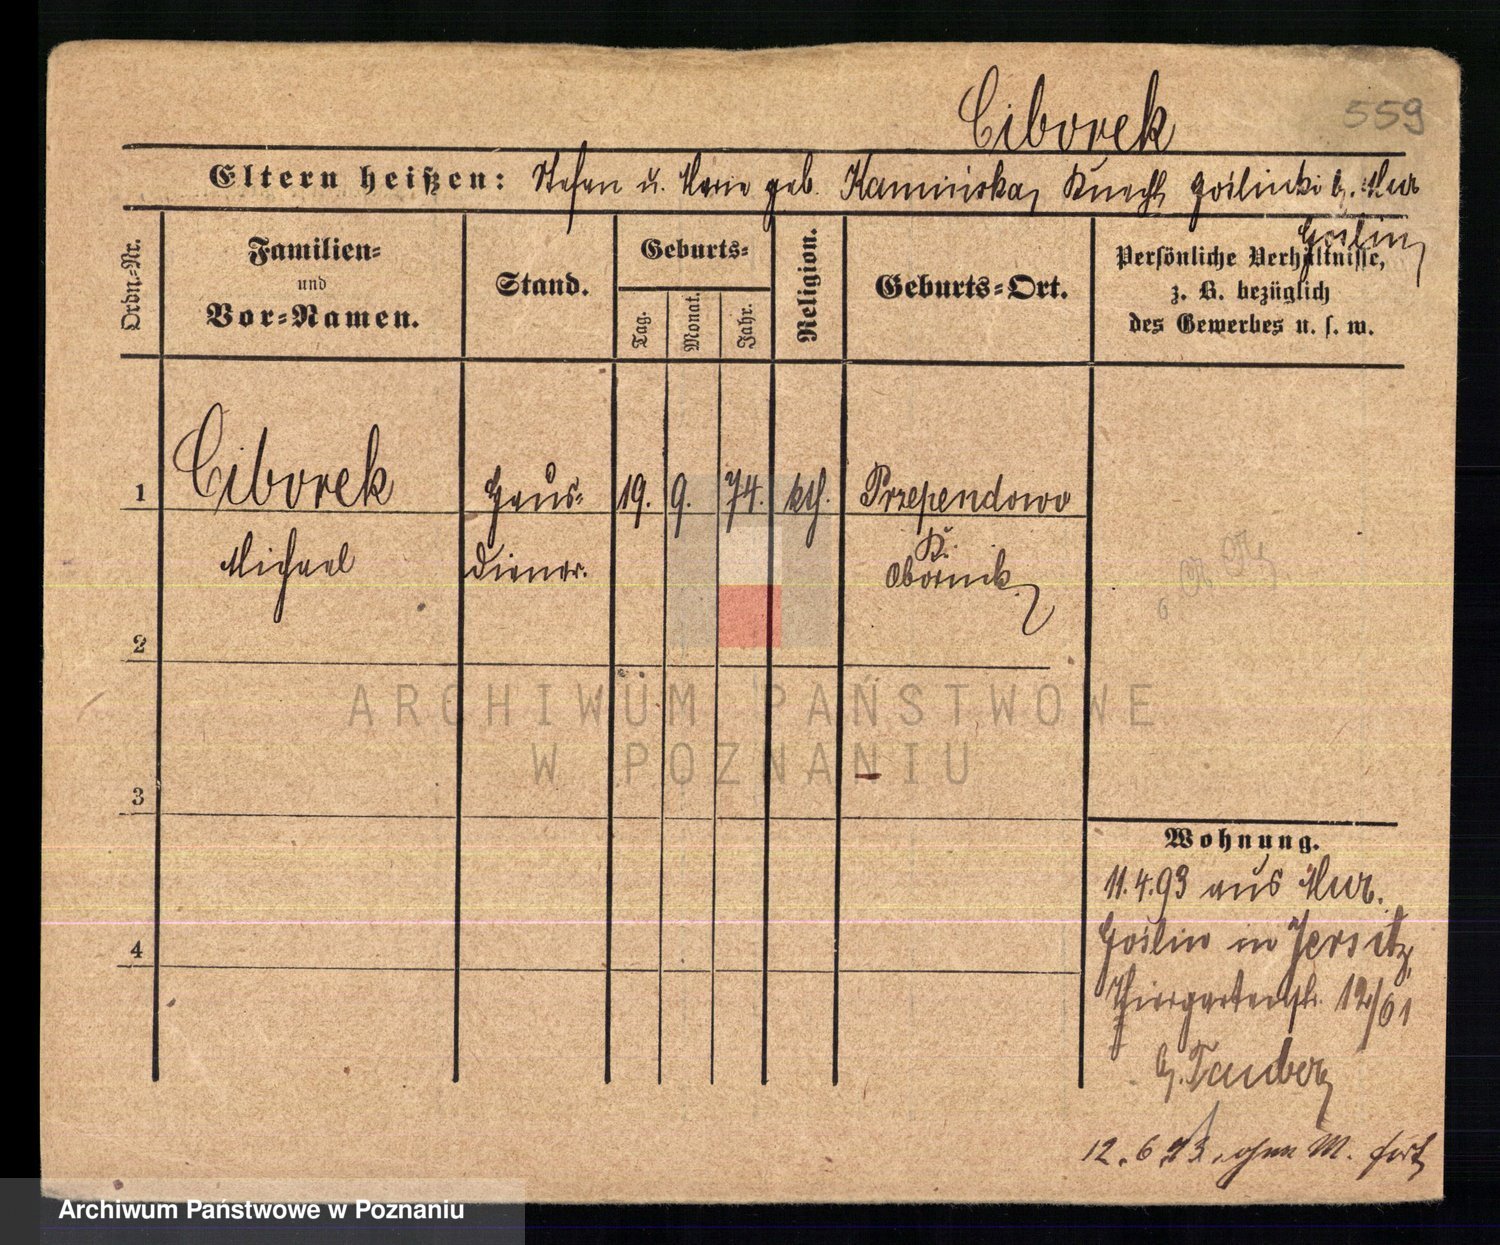 Ciborek
559
Eltern heißen: Stefan u. Marie geb. Kaminska, Knecht Goslinki b. Mur
Goslin
Ordn.-Nr.
Familien-
und
Vor-Namen.
Stand.
Geburts-
Tag.
Monat.
Jahr.
Religion.
Geburts-Ort.
Persönliche Verhältnisse,
z. B. bezüglich
des Gewerbes u. s. w.
1 Ciborek Haus- 19. 9. 74. kth. Przependowo
Michael diener. K.
Obornik
2
ARCHIWUM PAŃSTWOWE
W POZNANIU
3
Wohnung.
11.4.93 aus Mur.
4
Goslin in Jersitz,
Thiergartenstr. 12/61
b. Tauber
12.6.93. ohne M. fort
Archiwum Państwowe w Poznaniu